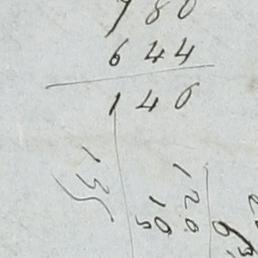 780
644
146
135
120
105